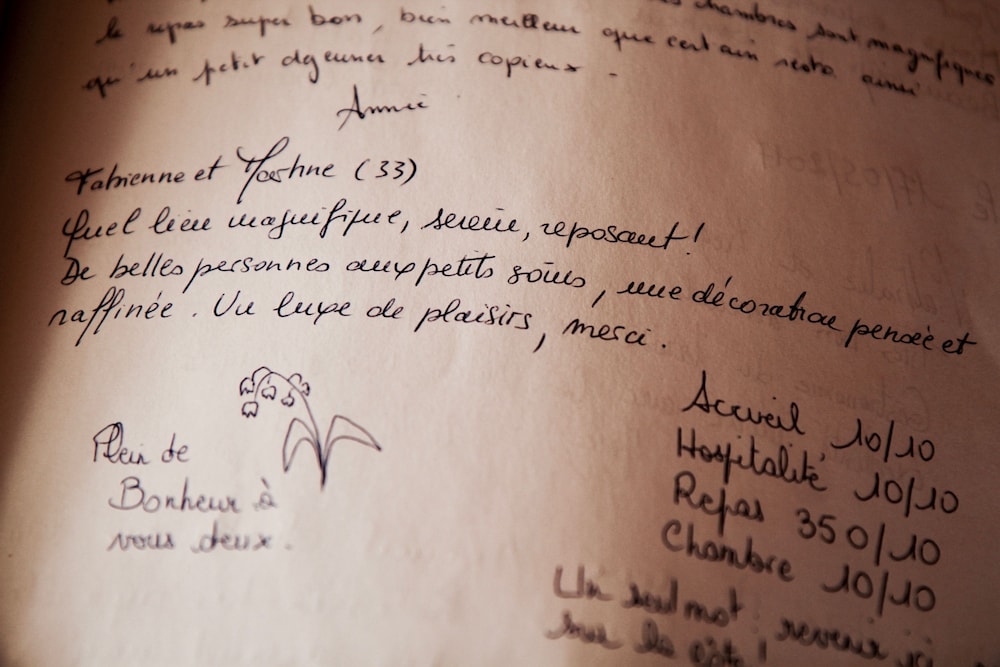 chambres sont magnifiques
le repas super bon, bien meilleur que certain resto ainsi
qu'un petit dejeuner très copieux.
Annie
Fabienne et (33)
Quel lieu magnifique, serein, reposant!
De belles personnes aux petits soins, une décoration pensée et
raffinée. Un luxe de plaisirs, merci.
Plein de
Bonheur à
vous deux.
Accueil 10/10
Hospitalité 10/10
Repas 350/10
Chambre 10/10
Un seul mot: revenir ici
sur la